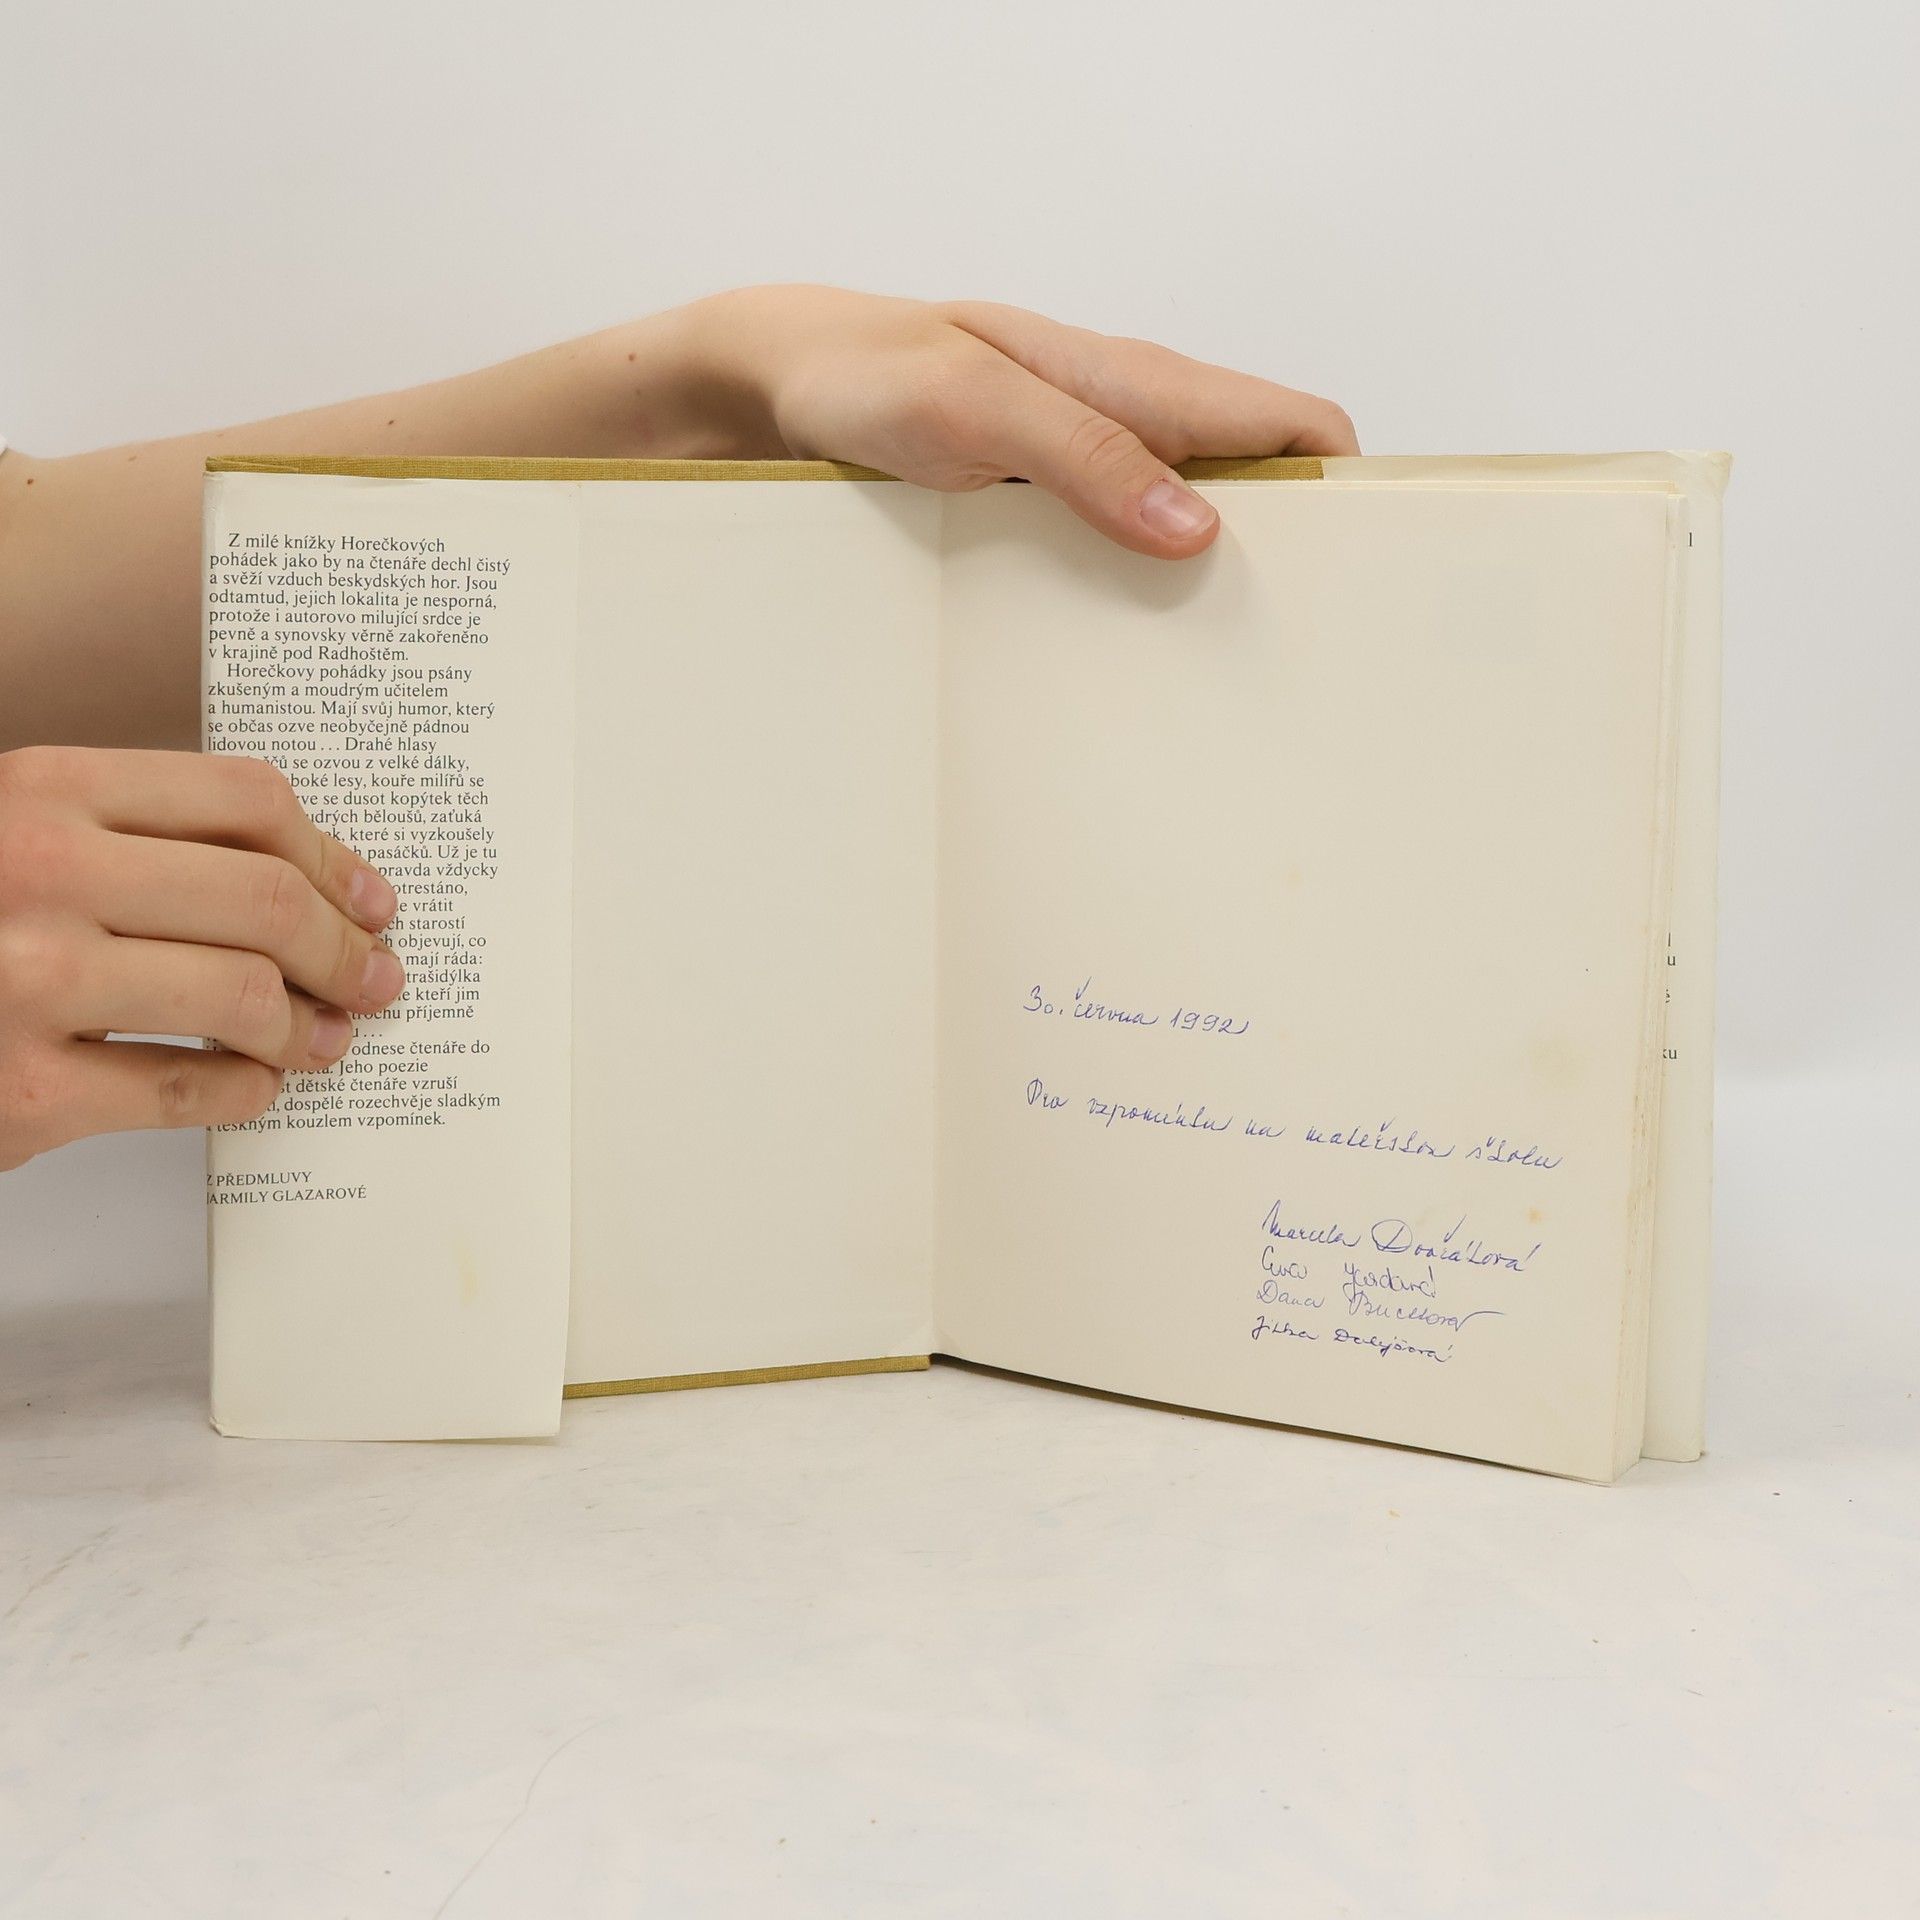 Z milé knížky Horečkových
pohádek jako by na čtenáře dechl čistý
a svěží vzduch beskydských hor. Jsou
odtamtud, jejich lokalita je nesporná,
protože i autorovo milující srdce je
pevně a synovsky věrně zakořeněno
v krajině pod Radhoštěm.
Horečkovy pohádky jsou psány
zkušeným a moudrým učitelem
a humanistou. Mají svůj humor, který
se občas ozve neobyčejně pádnou
lidovou notou ... Drahé hlasy
se ozvou z velké dálky,
lesy, kouře milířů se
se dusot kopýtek těch
běloušů, zaťuká
které si vyzkoušely
pasáčků. Už je tu
pravda vždycky
vrátit
starostí
objevují, co
mají ráda:
kteří jim
příjemně
odnese čtenáře do
světa. Jeho poezie
dětské čtenáře vzruší
dospělé rozechvěje sladkým
teskným kouzlem vzpomínek.
Z PŘEDMLUVY
JARMILY GLAZAROVÉ
30. června 1992
Pro vzpomínku na mateřskou školu
Marcela Dvořáková
Eva
Dana
Jitka Dolejšová
l
u
ku